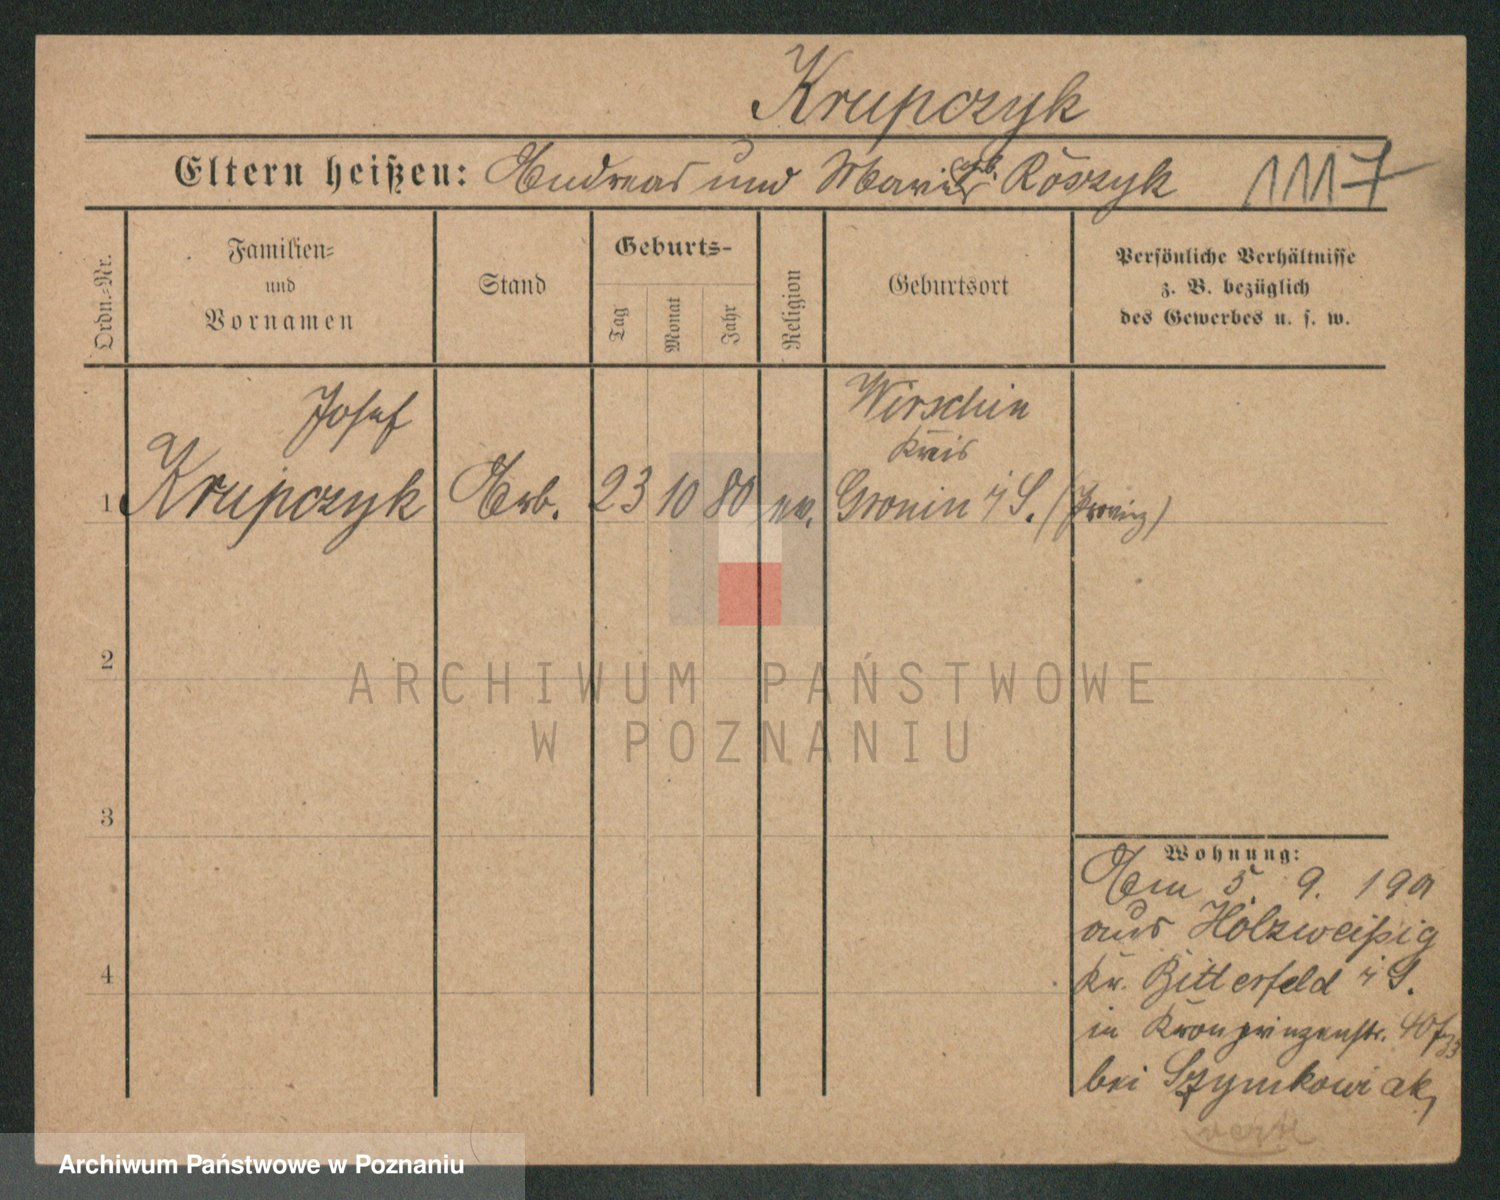 Krupczyk
Eltern heißen: Andreas und Maria geb. Röszyk 1117
Ordn.-Nr.
Familien-
und
Vornamen
Stand
Geburts-
Tag
Monat
Jahr
Religion
Geburtsort
Persönliche Verhältnisse
z. B. bezüglich
des Gewerbes u. s. w.
Josef
Wirschin
Kreis
1 Krupczyk Arb. 23 10 80 Gronin i/S. (Provinz)
2
3
4
ARCHIWUM PAŃSTWOWE
W POZNANIU
Wohnung:
Am 5. 9. 190
aus Holzweißig
Kr. Bitterfeld i/S.
in Kronprinzenstr. 40
bei Szymkowiak,
Archiwum Państwowe w Poznaniu